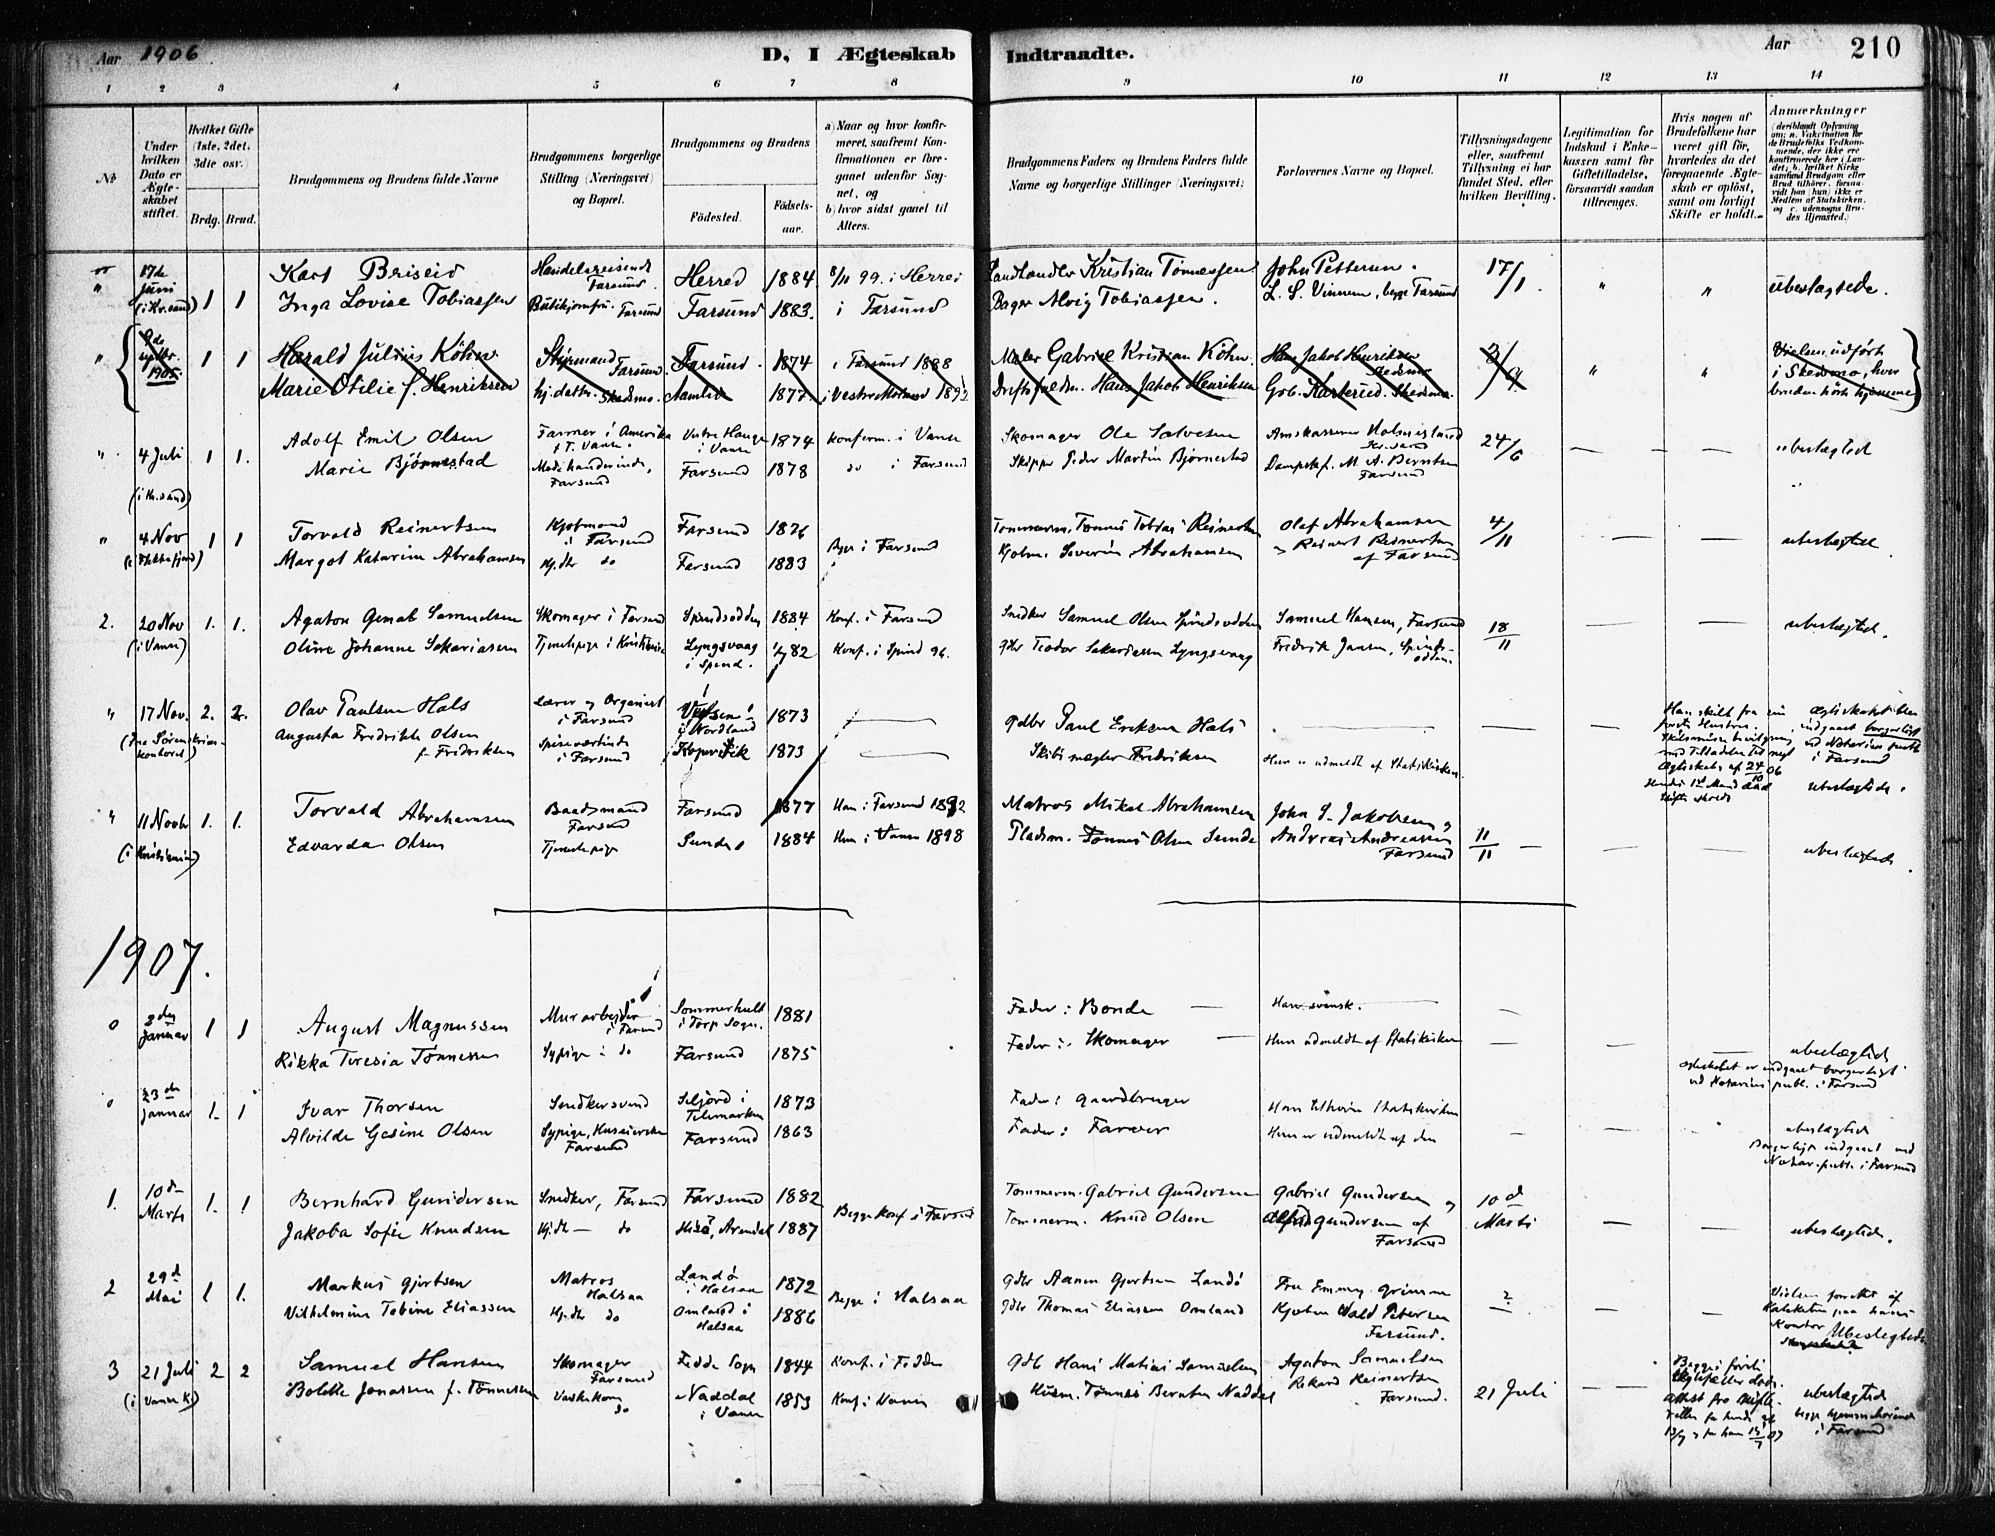 Aar 1906
D, I Ægteskab
Indtraadte.
Aar
210
1 2 3 4 5 6 7 8 9 10 11 12 13 14
№
Under hvilken Dato er Ægteskabet stiftet.
Hvilket Gifte (1ste, 2det, 3die osv.)
Brdg. Brud.
Brudgommens og Brudens fulde Navne
Brudgommens borgerlige Stilling (Næringsvei) og Bopæl.
Brudgommens og Brudens
Fødested.
Fødselsaar.
a) Naar og hvor konfirmeret, saafremt Konfirmationen er foregaaet udenfor Sognet, og
b) hvor sidst gaaet til Alters.
Brudgommens Faders og Brudens Faders fulde Navne og borgerlige Stillinger (Næringsvei)
Forlovernes Navne og Bopæl.
Tillysningsdagene eller, saafremt Tillysning ei har fundet Sted, efter hvilken Bevilling.
Legitimation for Indskud i Enkekassen samt for Giftetilladelse, forsaavidt saadan tiltrænges.
Hvis nogen af Brudefolkene har været gift før, hvorledes da det foregaaende Ægteskab er opløst, samt om lovligt Skifte er holdt.
Anmærkninger
(deriblandt Oplysning om: a. Vakcination for de Brudefolks Vedkommende, der ikke ere konfirmerede her i Landet; b. hvilket Kirkesamfund Brudgom eller Brud tilhører, forsaavidt han (hun) ikke er Medlem af Statskirken, og c. udensogns Brudes Hjemsted.)
17de Juni 1 1 Karl Briseid Handelsreisende Farsund. Herred 1884 8/11 99. i Herred Kristian Tønnessen John Pettersen. 17/1 " " ubeslægtede.
(i Kr.sand) Inga Lovise Tobiassen Farsund Farsund 1883. i Farsund Bager Alvig Tobiassen. begge Farsund
" 9de septbr. 1905. 1 1 Harald Julius Köhn Styrmand Farsund. Farsund. 1874 i Farsund 1888 Maler Gabriel Kristian Köhn. Hans Jakob Henriksen Skedsmo 3/9. " " Vielsen udført i Skedsmo, hvor bruden hørte hjemme
Marie Otilie f. Henriksen hj.datter. Skedsmo. Aamlid 1877 i Vestre Moland 1892 Hans Jakob Henriksen Skedsmo.
" 4 Juli 1 1. Adolf Emil Olsen Farmer i Amerika f. T. Vanse. Vestre Hauge i Vanse 1874 Konferm. i Vanse Skomager Ole Salvesen Kr.sand 24/6 — — — ubeslægted
(i Kr.sand) Marie Bjørnestad Modehandlerinde, Farsund Farsund 1878 do i Farsund Skipper Peder Martin Bjørnestad Dampskf. M. A. Berntsen Farsund
" 4 Nov 1 1 Torvald Reinertsen Kjøbmand i Farsund Farsund 1876 Begge i Farsund Tømmerm. Tønnes Tobias Reinertsen Olaf Abrahamsen 4/11 — — ubeslægted.
(i Flekkefjord) Margot Katarine Abrahamsen Hj.dtr do Farsund 1883 Severin Abrahamsen og Reinert Reinertsen af Farsund
2. 20 Nov 1. 1. Agaton Genat Samuelsen Skomager i Farsund Spindsodden 1884 Konf. i Farsund Snedker Samuel Olsen Spindsodden Samuel Hansen, Farsund 18/11 — — ubeslægted.
(i Vanse) Oline Johanne Sakariasen Tjenestepige i Kristiania Lyngsvaag i Spind. 82 Konf. i Spind 96. gdbr Teodor Sakariasen Lyngsvaag Fredrik Jansen, Spindsodden.
" 17 Nov. 2. 2. Olav Paulsen Hals Lærer og Organist i Farsund i Nordland 1873 — gdbr Paul Eriksen Hals — — — Han skilt fra sin første Hustru. Ægteskabet blev indgaaet borgerligt ved Notarius publ. i Farsund
Augusta Fredrikke Olsen f. Fredriksen Spiseværtinde i Farsund 1873 — Skibsmægler Fredriksen Hun er udmeldt af Statskirken. ubeslægtede.
" 11 Novbr 1. 1. Torvald Abrahamsen Baadsmand Farsund Farsund 1877 Han i Farsund 1892 Matros Mikal Abrahamsen John J. Jakobsen og 11/11 — — — ubeslægtede
(i Kristiania) Edvarda Olsen Tjenestepige Sunde 1884 Hun i Vanse 1898 Pladsm. Tønnes Olsen Sunde Andreas Andreassen Farsund
1907.
0 2den Januar 1 1 August Magnussen Murarbeider i Farsund Sommerhult i Torp Sogn. 1881 Fader: Bonde — Han svensk. — —
Rikka Teresia Tønnessen Sypige i do Farsund 1875 Fader: Skomager — Hun udmeldt af Statskirken — — — ubeslægted
Ægteskabet er indgaaet borgerligt ved Notarius publ. i Farsund
0 23de Januar 1. 1 Ivar Thorsen Snedkersvend Seljord i Telemarken 1873 Fader: gaardbruger Han tilhører Statskirken
Alvilde Gesine Olsen Sypige, Farsund Farsund 1863 Fader: Farver Hun er udmeldt af den — — ubeslægted
Borgerligt indgaaet ved Notar. publ. i Farsund
1. 10de Marts 1. 1 Bernhard Gundersen Snedker, Farsund Farsund 1882 Begge konf. i Farsund Tømmerm. Gabriel Gundersen Gabriel Gundersen og 10de Marts — — ubeslægtede.
Jakoba Sofie Knudsen Hj.dtr — do Hisø, Arendal 1887 Tømmerm. Knud Olsen Gundersen af Farsund
2 29de Mai 1 1. Markus Gjertsen Matros Halsaa Landø i Halsaa 1872 Begge i Halsaa gdbr Aanen Gjertsen Landø Fru Emmy Grimm ? — — — Vielsen forrettet af Kateketen paa hans Kontor Ubeslegtede
Vilhelmine Tobine Eliassen Hj.dtr do Omland i Halsaa 1886 gdbr Thomas Eliassen Omland Petersen Farsund.
3 21 Juli 2 2 Samuel Hansen Skomager Farsund Fedde Sogn 1844 Konf. i Fedde Gdb Hans Matias Samuelsen Agaton Samuelsen 21 Juli — — Begges første Ægtefæller døde. ubeslægtede
(i Vanse K) Bolette Jonassen f. Tønnessen Vaskekone do Naddal i Vanse 1853 Konf. i Vanse Husm. Tønnes Berntsen Naddal Rikard Reinertsen Farsund. begge hjemmehørende i Farsund